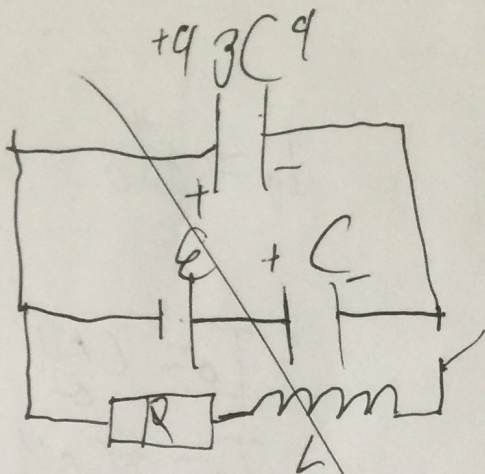 +q 3C q
+ -
ℰ + C -
R
L